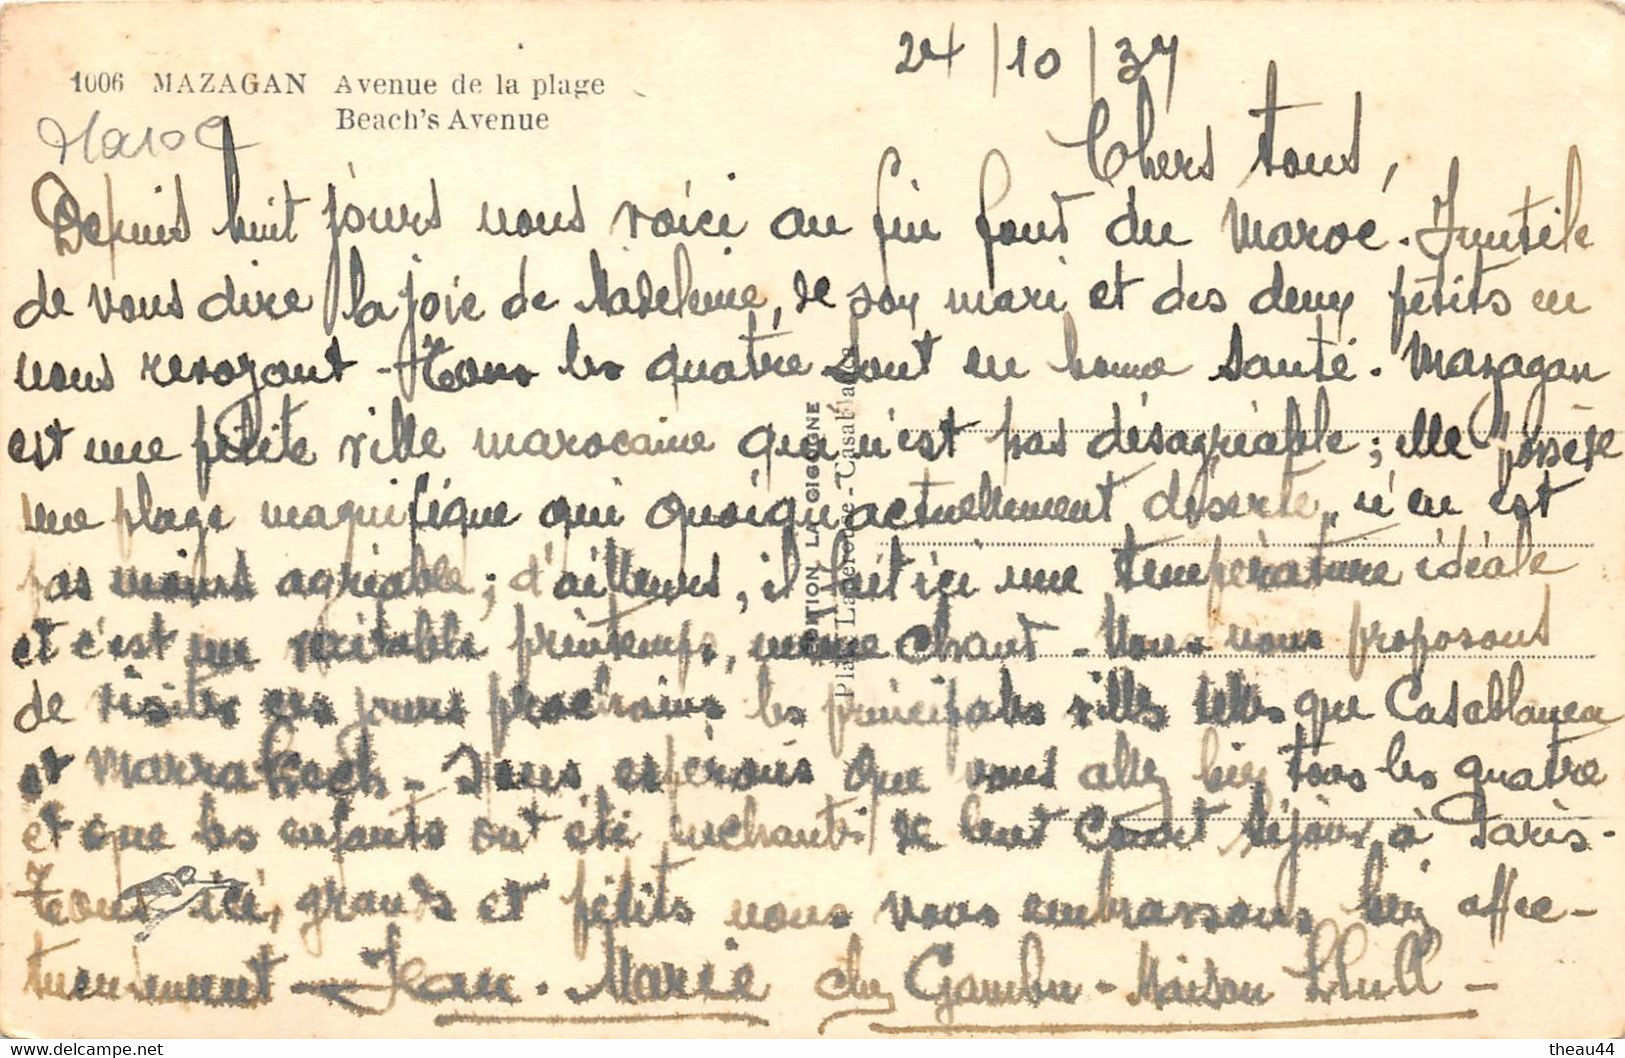 1006 MAZAGAN Avenue de la plage
Beach's Avenue
Maroc
24/10/37
Chers tous,
Depuis huit jours nous voici au fin fond du Maroc. Inutile
de vous dire la joie de Madeleine, de son mari et des deux petits en
nous revoyant - Tous les quatre sont en bonne santé. Mazagan
est une petite ville marocaine qui n'est pas désagréable ; elle possède
une plage magnifique qui quoiqu'actuellement déserte, n'en est
pas moins agréable ; d'ailleurs, il fait ici une température idéale
et c'est un véritable printemps, même chaud - Nous nous proposons
de visiter ces jours prochains les principales villes telles que Casablanca
et Marrakech - Nous espérons que vous allez bien tous les quatre
et que les enfants ont été enchantés de leur court séjour à Paris -
Tous ici, grands et petits nous vous embrassons bien affec-
tueusement - Jean-Marie chez Gambu - Maison Llull -
EDITION LA CIGOGNE
Place Laperouse - Casablanca
theau44